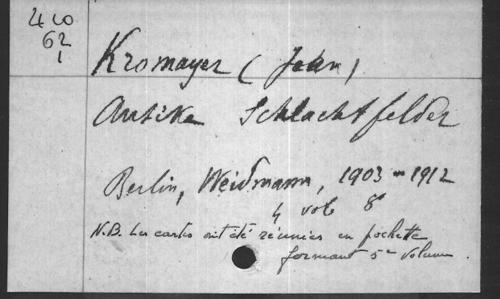 4 co
62
1
Kromayer (Jean)
Antike Schlachtfelder
Berlin, Weidmann, 1903-1912
4 vols 8°
N.B. Les cartes ont été réunies en pochette
formant 5e volume